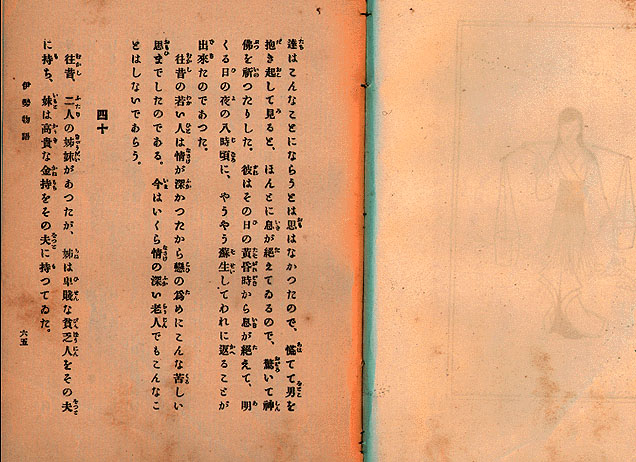 達はこんなことにならうとは思はなかつたので、慌てて男を
抱き起して見ると、ほんとに息が絶えてゐるので、驚いて神
佛を祈つたりした。彼はその日の黄昏時から息が絶えて、明
くる日の夜の八時頃に、やうやう蘇生してわれに返ることが
出來たのであつた。
往昔の若い人は情が深かつたから戀の爲めにこんな苦しい
思までしたのである。今はいくら情の深い老人でもこんなこ
とはしないであらう。
四十
往昔、二人の姉妹があつたが、姉は卑賤な貧乏人をその夫
に持ち、妹は高貴な金持をその夫に持つてゐた。
伊勢物語
六五